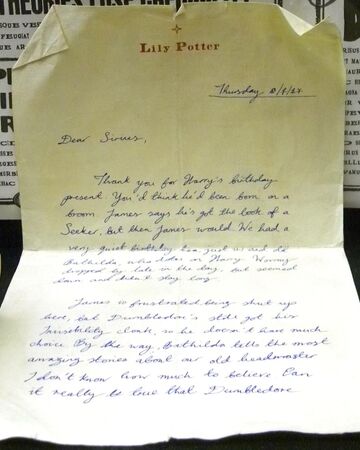 THEORIES
Lily Potter
Thursday
Dear Sirius,
Thank you for Harry's birthday
present. You'd think he'd been born on a
broom James says he's got the look of a
Seeker, but then James would. We had a
very quiet birthday tea, just us and old
Bathilda, who dotes on Harry Wormy
dropped by late in the day, but seemed
down and didn't stay long.
James is frustrated being shut up
here, but Dumbledore's still got his
Invisibility cloak, so he doesn't have much
choice By the way, Bathilda tells the most
amazing stories about our old headmaster
I don't know how much to believe Can
it really be true that Dumbledore